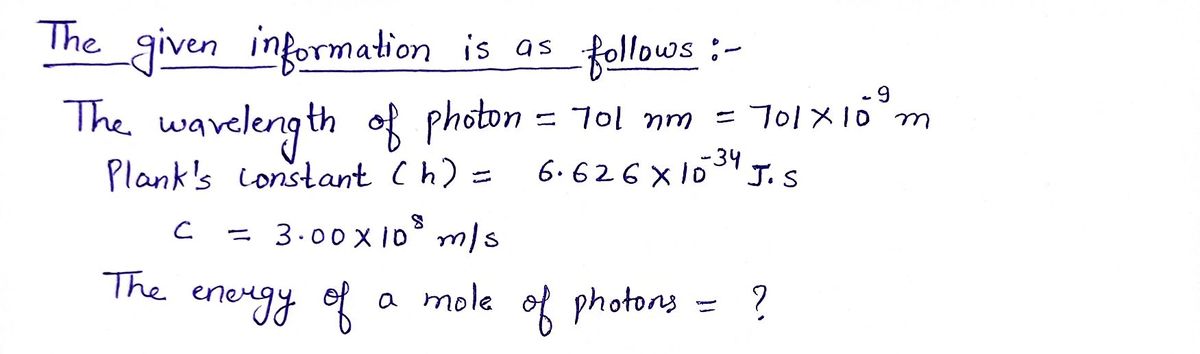 The given information is as follows :-
The wavelength of photon = 701 nm = 701 × 10⁻⁹ m
Plank's constant (h) = 6.626 × 10⁻³⁴ J.s
C = 3.00 × 10⁸ m/s
The energy of a mole of photons = ?